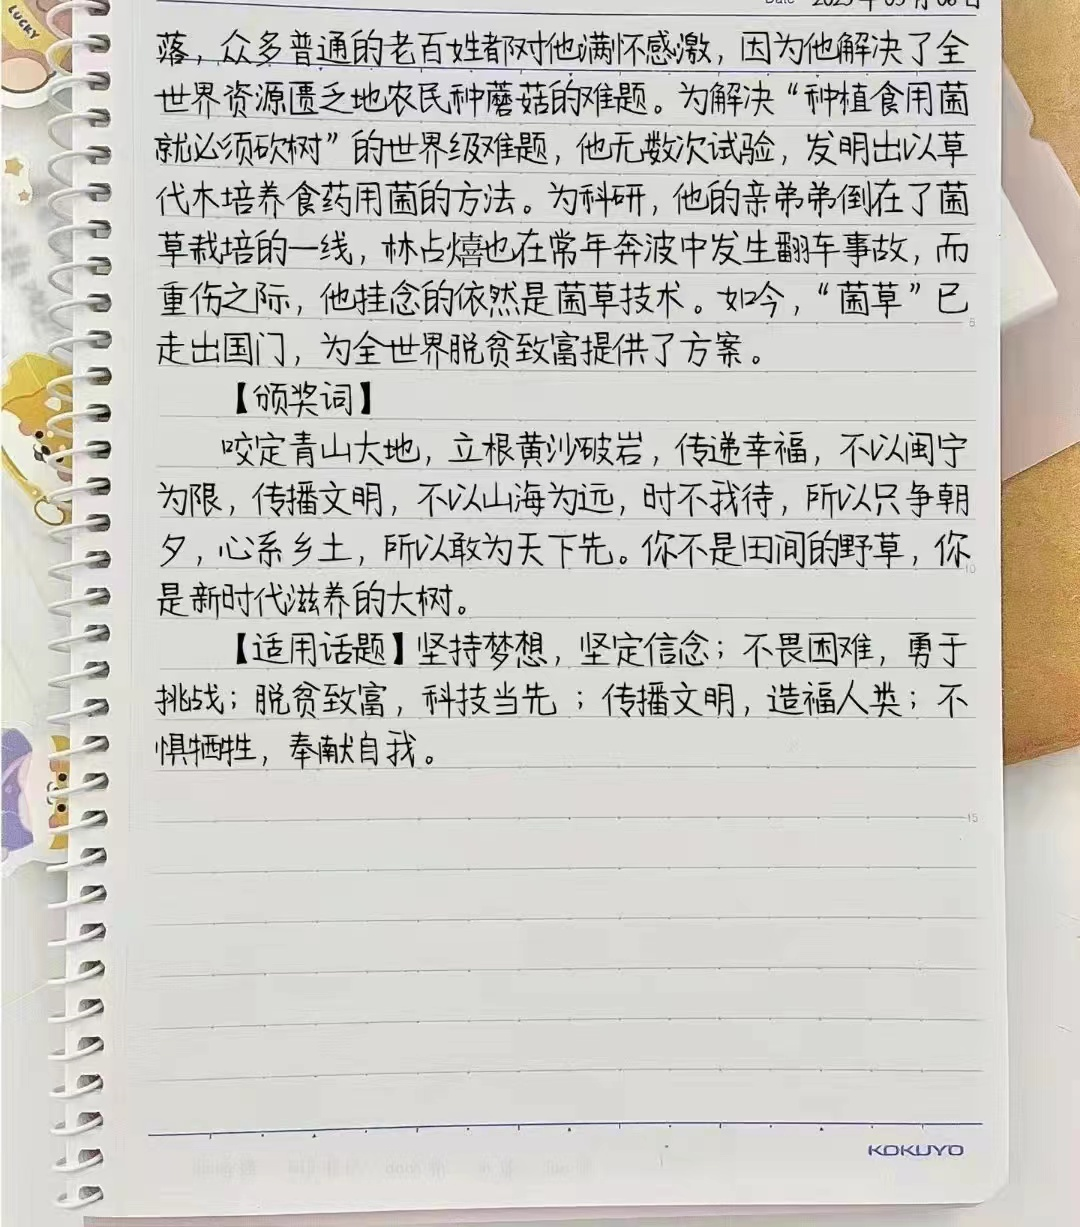 LUCKY
Date 2023年03月08日
落，众多普通的老百姓都对他满怀感激，因为他解决了全
世界资源匮乏地农民种蘑菇的难题。为解决“种植食用菌
就必须砍树”的世界级难题，他无数次试验，发明出以草
代木培养食药用菌的方法。为科研，他的亲弟弟倒在了菌
草栽培的一线，林占熺也在常年奔波中发生翻车事故，而
重伤之际，他挂念的依然是菌草技术。如今，“菌草”已
走出国门，为全世界脱贫致富提供了方案。
5
【颁奖词】
咬定青山大地，立根黄沙破岩，传递幸福，不以闽宁
为限，传播文明，不以山海为远，时不我待，所以只争朝
夕，心系乡土，所以敢为天下先。你不是田间的野草，你
10
是新时代滋养的大树。
【适用话题】坚持梦想，坚定信念；不畏困难，勇于
挑战；脱贫致富，科技当先；传播文明，造福人类；不
惧牺牲，奉献自我。
15
KOKUYO